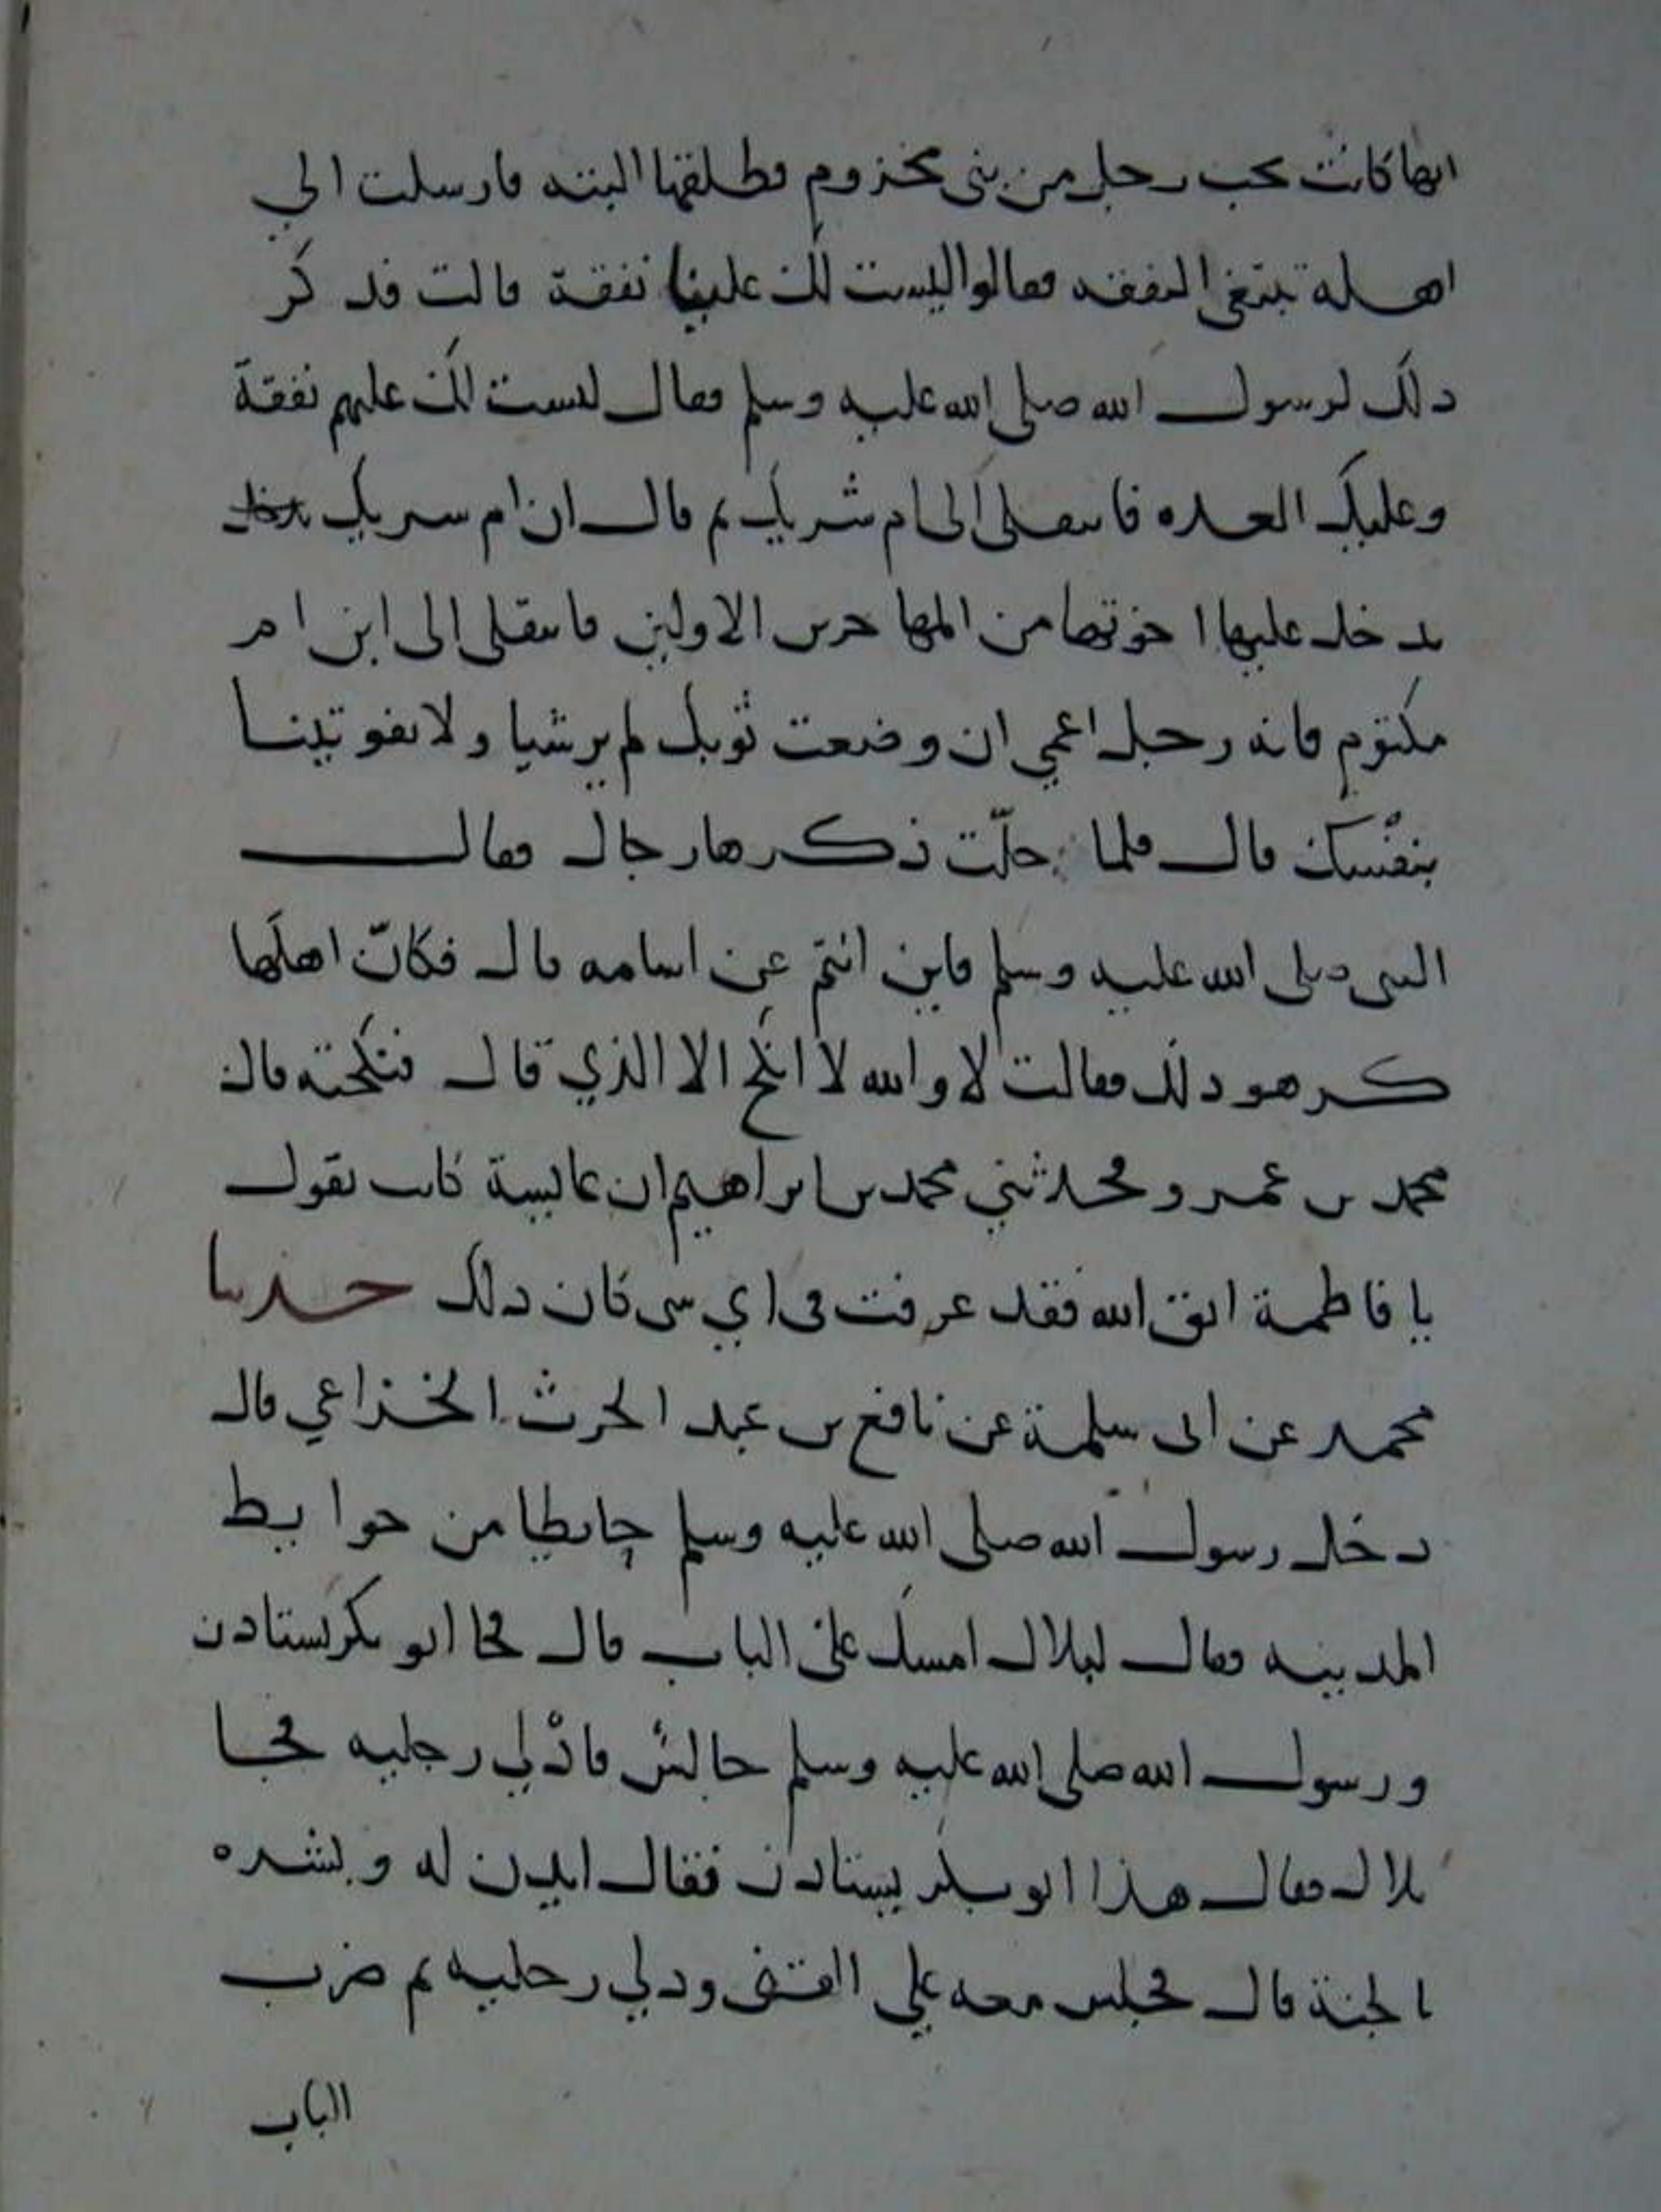 انها كانت تحت رجل من بنى مخزوم فطلقها البته فارسلت الي
اهله تبتغي النفقه فقالوا ليست لك علينا نفقة قالت فذكر
ذلك لرسول الله صلى الله عليه وسلم فقال ليست لك عليهم نفقة
وعليك العده فانتقلى الى ام شريك ثم قال ان ام شريك
يدخل عليها اخوتها من المهاجرين الاولين فانتقلى الى ابن ام
مكتوم فانه رجل اعمي ان وضعت ثوبك لم ير شيا ولا تفوتينا
بنفسك قال فلما حلّت ذكرها رجال فقال
النبى صلى الله عليه وسلم فاين انتم عن اسامه قال فكانّ اهلها
كرهو ذلك فقالت لا والله لا انكح الا الذي قال فنكحته قال
محمد بن عمرو فحدثني محمد بن ابراهيم ان عايشة كانت تقول
يا فاطمة اتق الله فقد عرفت فى اي شى كان ذلك حدثنا
محمد عن ابى سلمة عن نافع بن عبد الحرث الخزاعي قال
دخل رسول الله صلى الله عليه وسلم حايطا من حوايط
المدينه فقال لبلال امسك على الباب قال فجا ابو بكر يستاذن
ورسول الله صلى الله عليه وسلم جالس فادْلي رجليه فجا
بلال فقال هذا ابو بكر يستاذن فقال ايذن له وبشره
بالجنة قال فجلس معه علي القف ودلي رجليه ثم ضرب
الباب